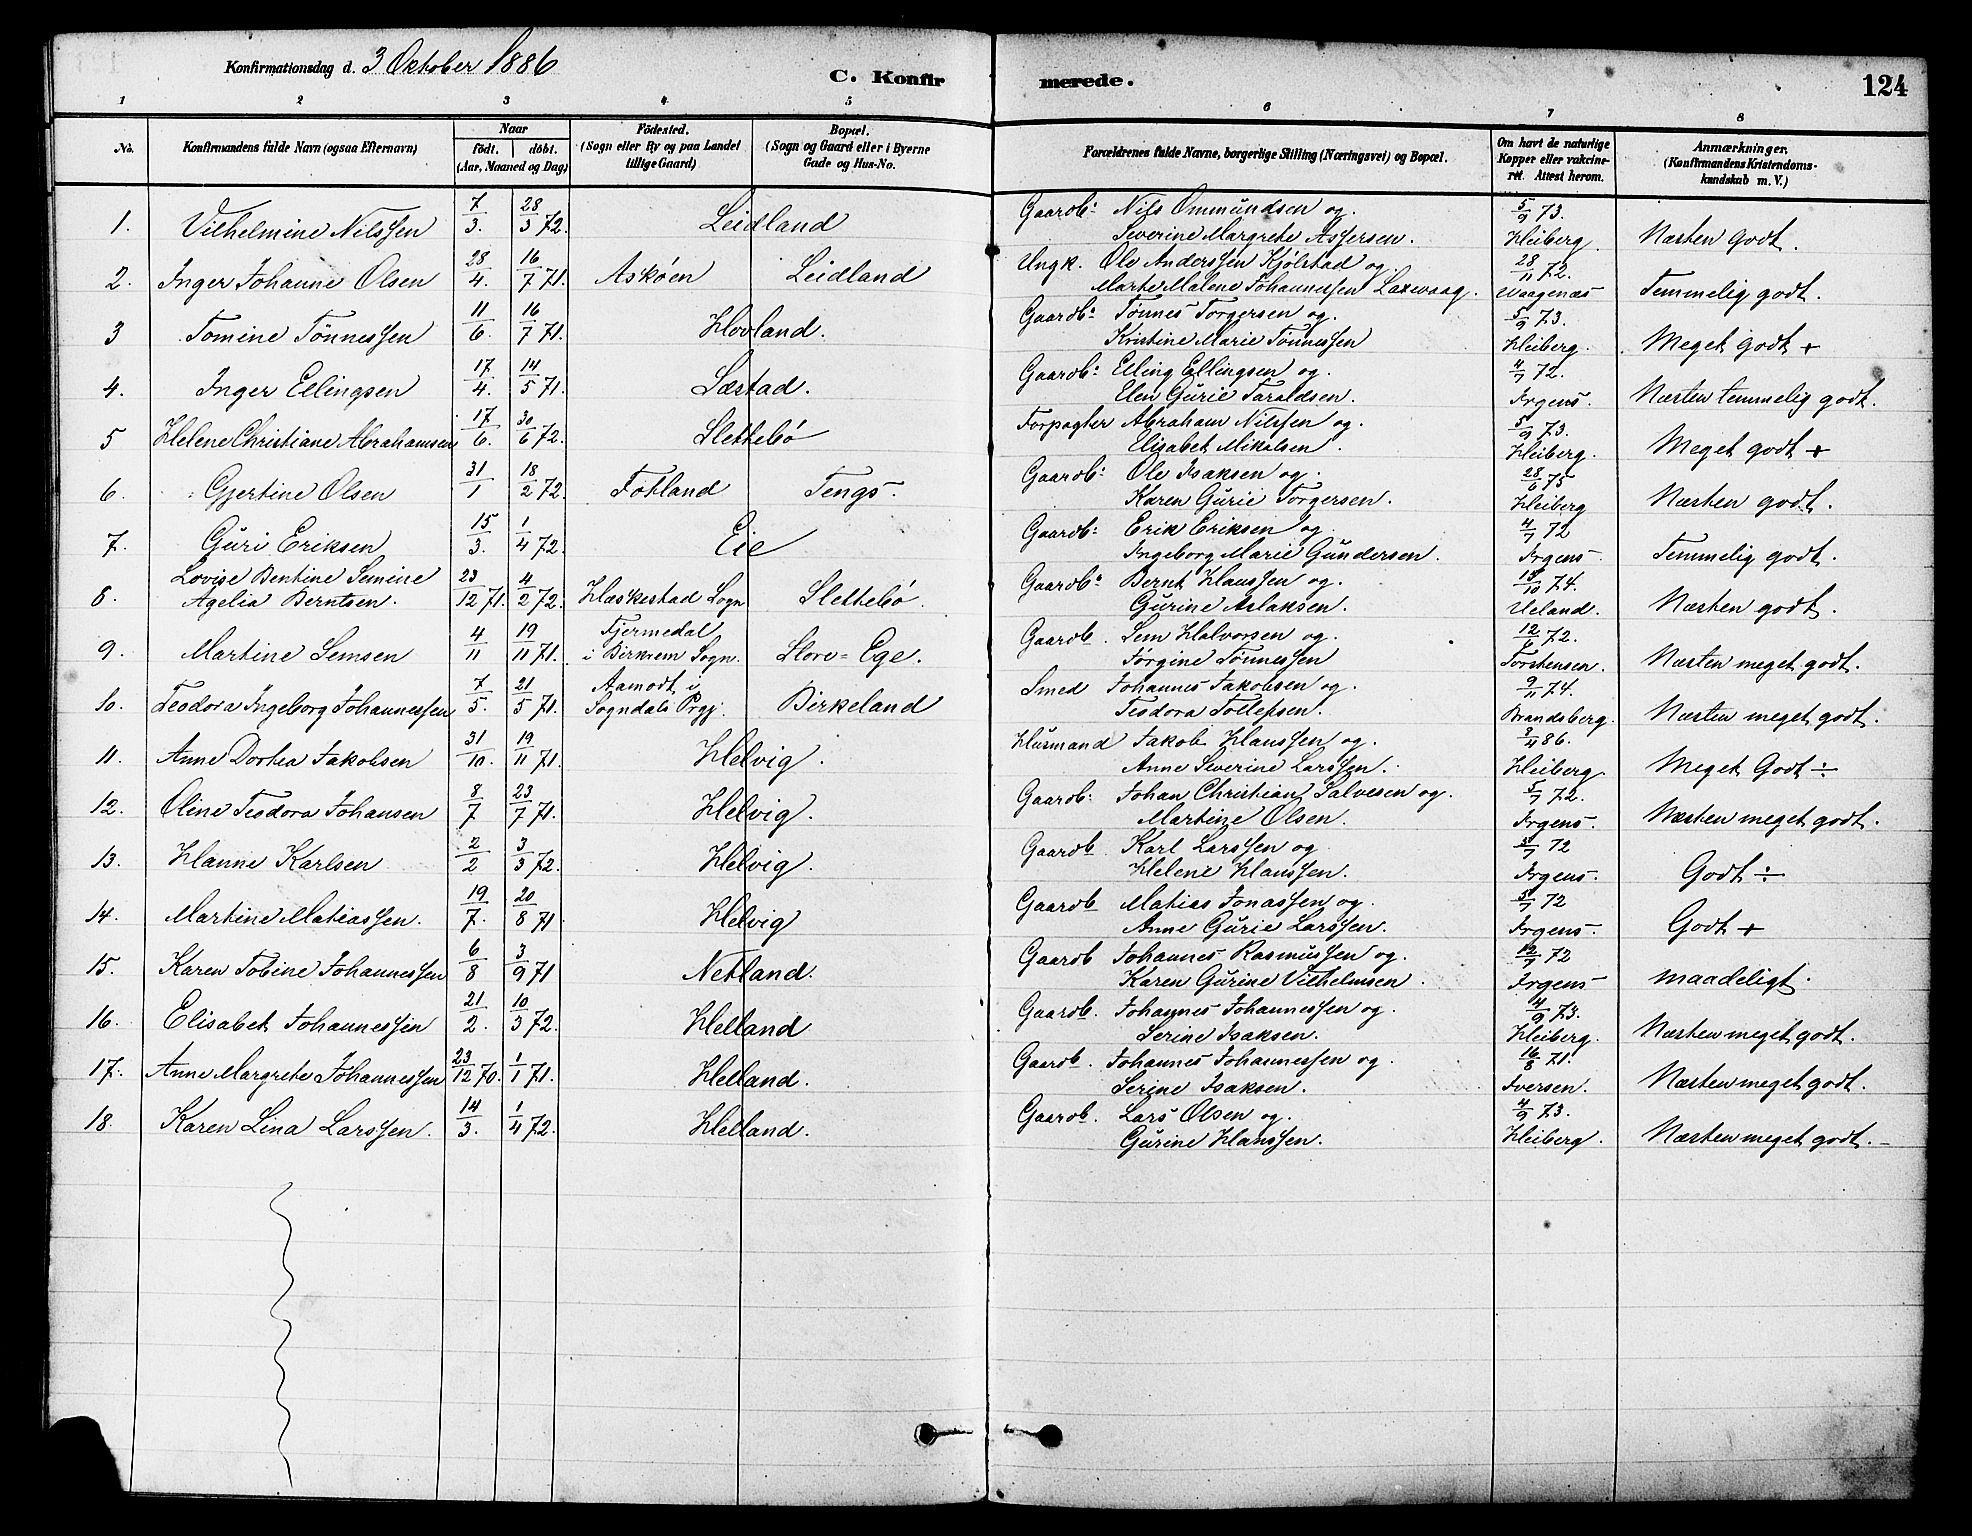 Konfirmationsdag d. 3 Oktober 1886
C. Konfirmerede.
124
1 2 3 4 5 6 7 8
No.
Konfirmandens fulde Navn (ogsaa Efternavn)
Naar
födt. döbt.
(Aar, Maaned og Dag)
Födested.
(Sogn eller By og paa Landet
tillige Gaard)
Bopæl.
(Sogn og Gaard eller i Byerne
Gade og Hus-No.
Forældrenes fulde Navne, borgerlige Stilling (Næringsvei) og Bopæl.
Om havt de naturlige
Kopper eller vakcine-
ret. Attest herom.
Anmærkninger.
(Konfirmandens Kristendoms-
kundskab m. V.)
1. Vilhelmine Nilssen 7/3. 28/3 72. Leidland Gaardb: Nils Ommundsen og. 5/9 73.
Severine Margrete Assersen. Heiberg. Næsten godt.
2. Inger Johanne Olsen 28/4. 16/7 71. Askøen Leidland Ungk. Ole Anderssen Kjølstad og 28/11 72.
Marte Malene Johannessen Laxevaag. Waagenæs Temmelig godt.
3 Tomine Tønnessen 11/6. 16/7 71. Hovland. Gaardb: Tønnes Torgersen og. 5/9 73.
Kristine Marie Tønnessen Heiberg. Meget godt +
4. Inger Ellingsen 17/4. 14/5 71. Sæstad. Gaardb: Elling Ellingsen og. 4/7 72.
Elen Gurie Taraldsen. Irgens. Næsten temmelig godt.
5 Helene Christiane Abrahamsen 17/6. 30/6 72. Slettebø Forpagter Abraham Nilssen og. 5/9 73.
Elisabet Mikalsen. Heiberg. Meget godt +
6. Gjertine Olsen 31/1 18/2 72. Fotland Tengs. Gaardb: Ole Isaksen og. 28/6 75
Karen Gurie Torgersen. Heiberg Næsten godt.
7. Guri Eriksen 15/3. 1/4 72. Eie Gaardb: Erik Eriksen og. 4/7 72
Ingeborg Marie Gundersen. Irgens. Temmelig godt.
8. Lovise Bentine Semine 23/12 71. 4/2 72. Hæskestad Sogn Slettebø. Gaardb: Bernt Hanssen og. 15/10 74.
Agelia Berntsen. Gurine Aslaksen. Ueland. Næsten godt.
9. Martine Semsen 4/11 19/11 71. Tjermedal Gaardb. Sem Halvorsen og. 12/6 72.
i Birkrem Sogn. Store-Ege. Jørgine Tønnessen Torstensen. Næsten meget godt.
10. Teodora Ingeborg Johannessen 7/5. 21/5 71. Aamodt i Smed Johannes Jakobsen og. 9/11 74.
Sogndals Prgj. Birkeland Teodora Tollefsen. Brandsberg. Næsten meget godt.
11. Anne Dortea Jakobsen 31/10. 19/11 71. Helvig. Husmand Jakob Hanssen og. 3/4 86.
Anne Severine Larssen. Heiberg. Meget Godt ÷
12. Oline Teodora Johansen 8/7 23/7 71. Helvig. Gaardb: Johan Christian Salvesen og. 5/7 72.
Martine Olsen. Irgens. Næsten meget godt.
13. Hanne Karlsen 2/2 3/3 72. Helvig. Gaardb. Karl Larssen og 5/7 72
Helene Hanssen. Irgens. Godt ÷
14. Martine Matiassen. 19/7. 20/8 71 Helvig Gaardb Matias Jonassen og. 5/7 72
Anne Gurie Larssen. Irgens. Godt +
15. Karen Tobine Johannessen 6/8 3/9 71 Netland. Gaardb Johannes Rasmussen og. 12/7 72
Karen Gurine Vilhelmsen. Irgens maadeligt.
16. Elisabet Johannessen 21/2. 10/3 72. Helland Gaardb. Johannes Johannessen og. 4/9 73.
Serine Isaksen. Heiberg. Næsten meget godt.
17. Anne Margrete Johannessen 23/12 70. 1/1 71. Helland. Gaardb. Johannes Johannessen og. 16/8 71.
Serine Isaksen. Iversen. Næsten meget godt.
18. Karen Lina Larssen. 14/3. 1/4 72. Helland. Gaardb. Lars Olsen og. 4/9 73.
Gurine Hanssen. Heiberg. Næsten meget godt.